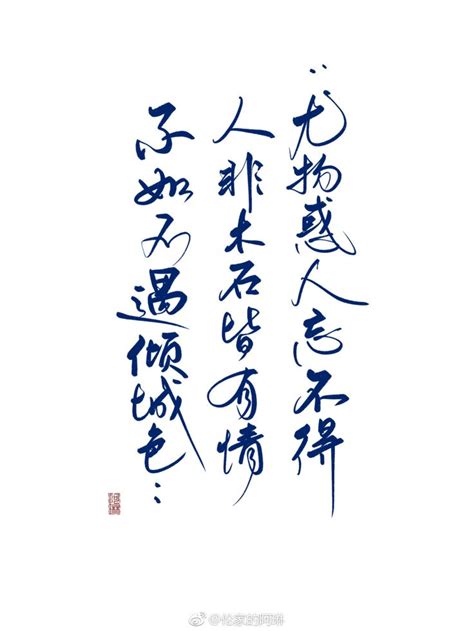 “尤物惑人忘不得
人非木石皆有情
不如不遇倾城色…
@伦家的阿琳